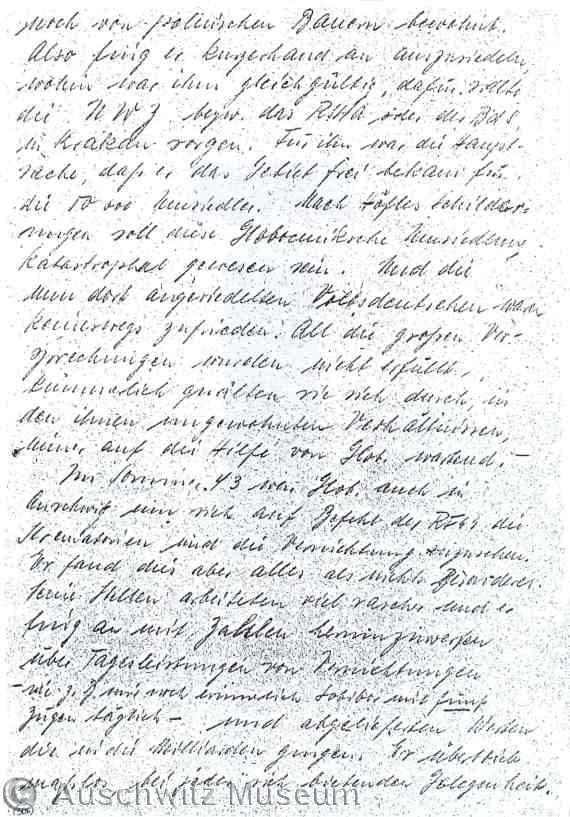 noch von polnischen Bauern bewohnt.
Also fing er kurzerhand an auszusiedeln,
wohin war ihm gleichgültig, dafür sollte
die UWZ bezw. das RSHA oder der BdS
in Krakau sorgen. Für ihn war die Haupt-
sache, daß er das Gebiet frei bekam für
die 50 000 Neusiedler. Nach Höfles Schilder-
ungen soll diese Globocniksche Umsiedlung
katastrophal gewesen sein. Und die
nun dort angesiedelten Volksdeutschen waren
keineswegs zufrieden. All die großen Ver-
sprechungen wurden nicht erfüllt,
kümmerlich quälten sie sich durch, in
den ihnen ungewohnten Verhältnissen,
immer auf die Hilfe von Glob. wartend. –
Im Sommer 43 war Glob. auch in
Auschwitz um sich auf Befehl des RFSS die
Krematorien und die Vernichtung anzusehen.
Er fand dies aber alles als nichts Besonderes.
Seine Stellen arbeiteten viel rascher und er
fing an mit Zahlen herumzuwerfen
über Tagesleistungen von Vernichtungen
– wie z. B. mir noch erinnerlich Sobibor mit fünf
Zügen täglich – und abgelieferten Werten
die in die Milliarden gingen. Er übertrieb
maßlos bei jeder sich bietenden Gelegenheit.
© Auschwitz Museum